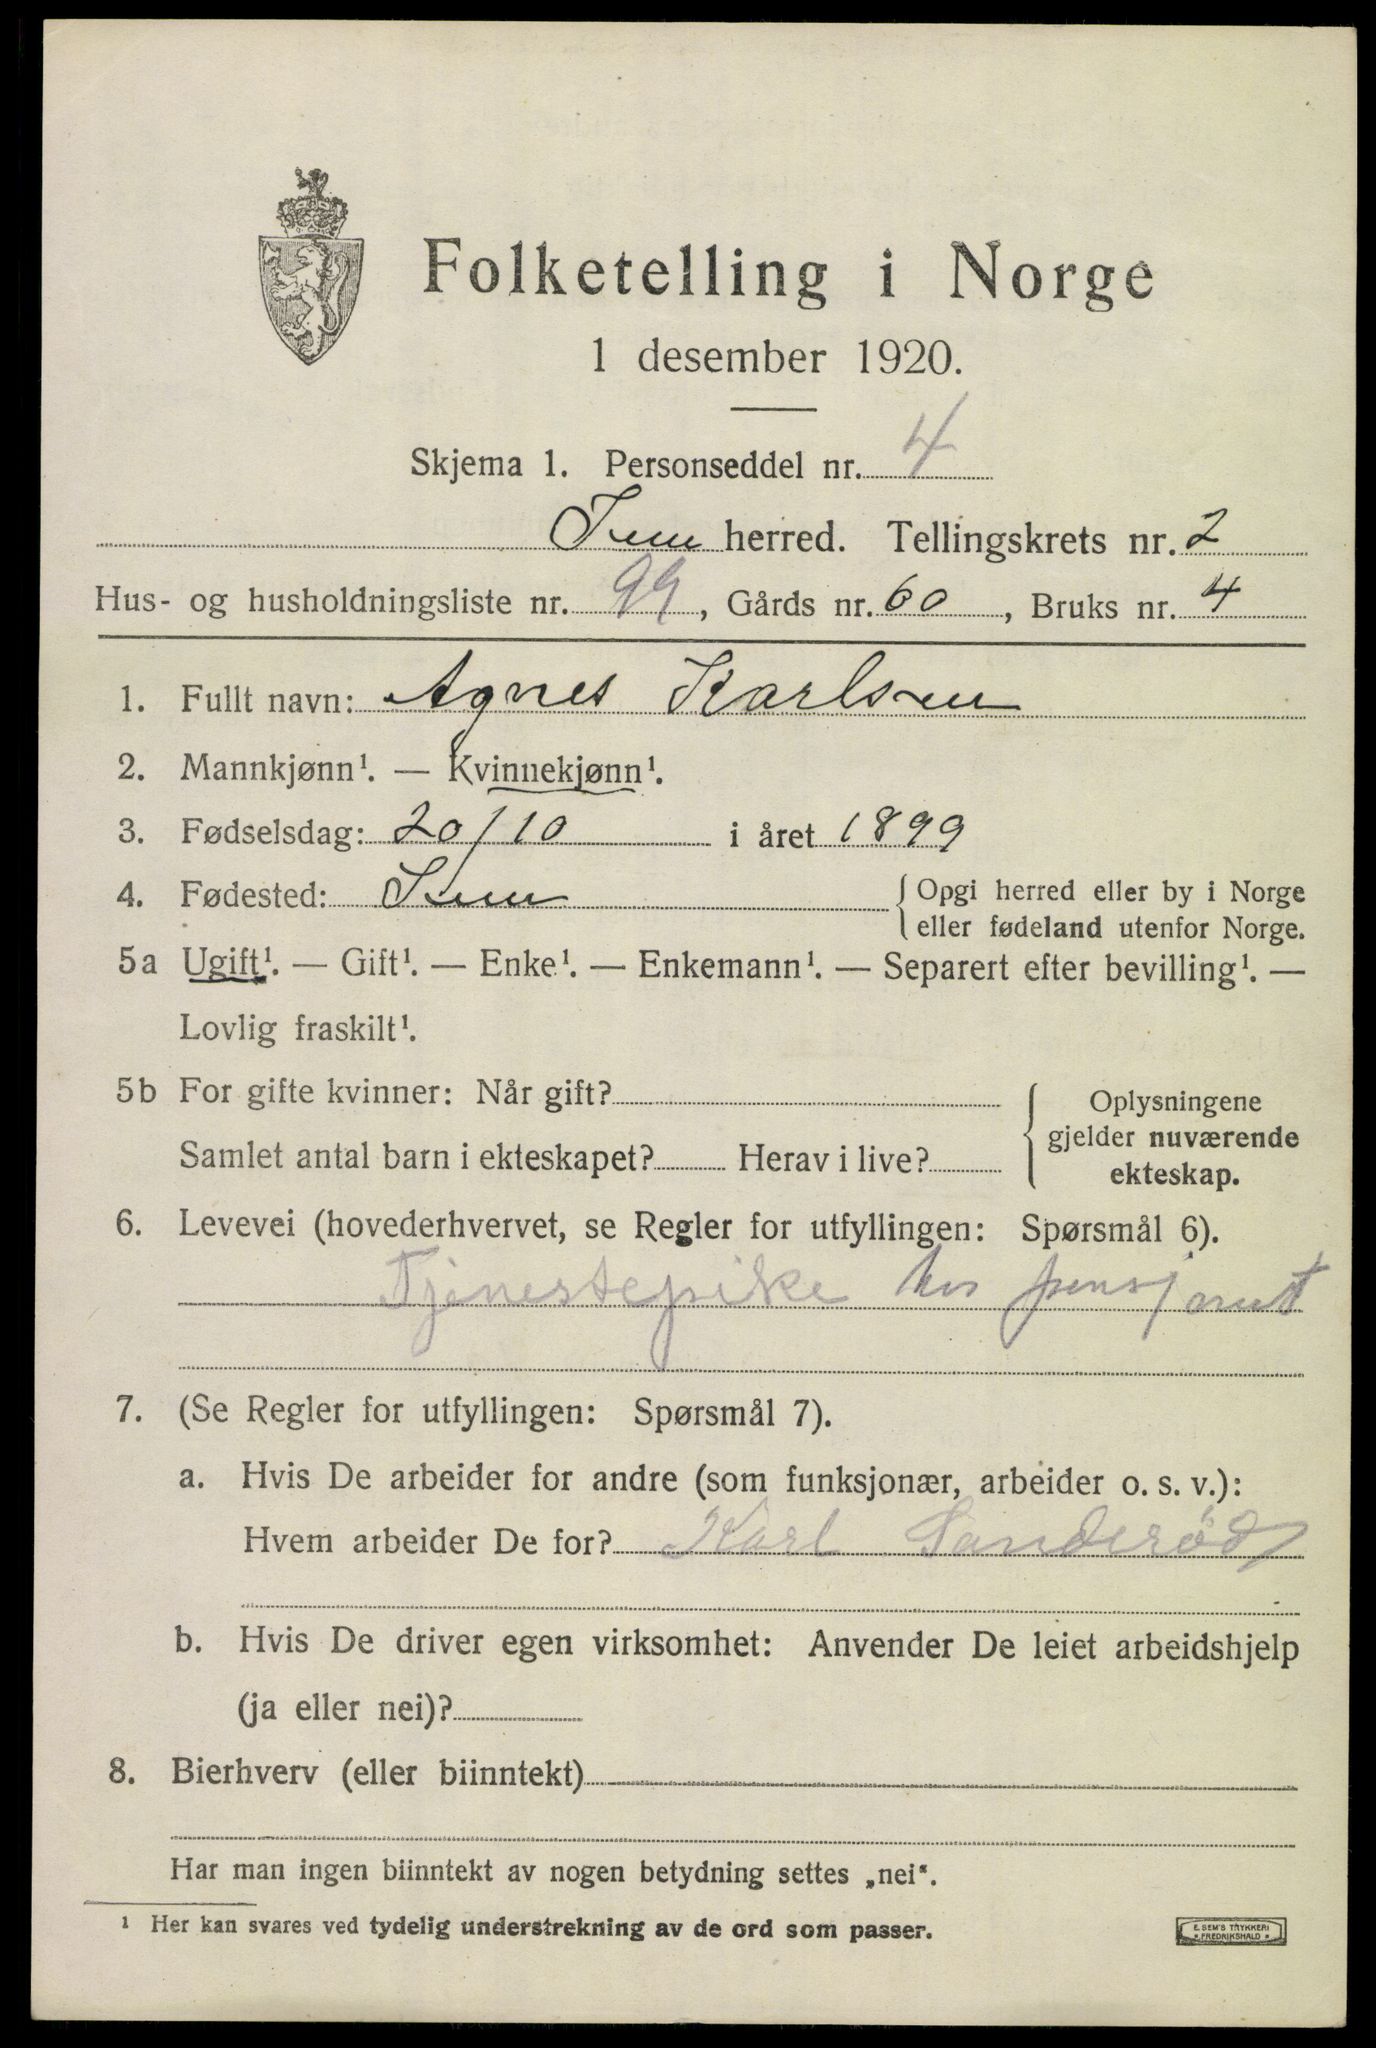 Folketelling i Norge
1 desember 1920.
Skjema 1. Personseddel nr. 4
Sem herred. Tellingskrets nr. 2
Hus- og husholdningsliste nr. 99, Gårds nr. 60, Bruks nr. 4
1. Fullt navn: Agnes Karlsen
2. Mannkjønn¹. — Kvinnekjønn¹.
3. Fødselsdag: 20/10 i året 1899
4. Fødested: Sem { Opgi herred eller by i Norge
eller fødeland utenfor Norge.
5a Ugift¹. — Gift¹. — Enke¹. — Enkemann¹. — Separert efter bevilling¹. —
Lovlig fraskilt¹.
5b For gifte kvinner: Når gift?
Samlet antal barn i ekteskapet? Herav i live?
Oplysningene
gjelder nuværende
ekteskap.
6. Levevei (hovederhvervet, se Regler for utfyllingen: Spørsmål 6).
Tjenestepike hos pensjonist
7. (Se Regler for utfyllingen: Spørsmål 7).
a. Hvis De arbeider for andre (som funksjonær, arbeider o. s. v.):
Hvem arbeider De for? Karl Sanderød
b. Hvis De driver egen virksomhet: Anvender De leiet arbeidshjelp
(ja eller nei)?
8. Bierhverv (eller biinntekt)
Har man ingen biinntekt av nogen betydning settes „nei“.
¹ Her kan svares ved tydelig understrekning av de ord som passer.
E. SEM'S TRYKKERI
FREDRIKSHALD